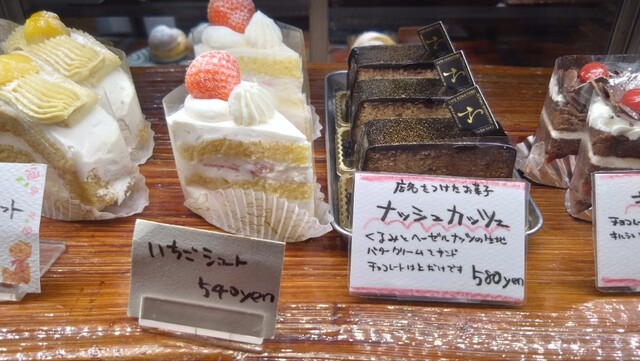 ート
いちごショート
540yen
店名をつけたお菓子
ナッシュカッツェ
くるみとヘーゼルナッツの生地
バタークリームでサンド
チョコレートは上だけです
580yen
チョコレ